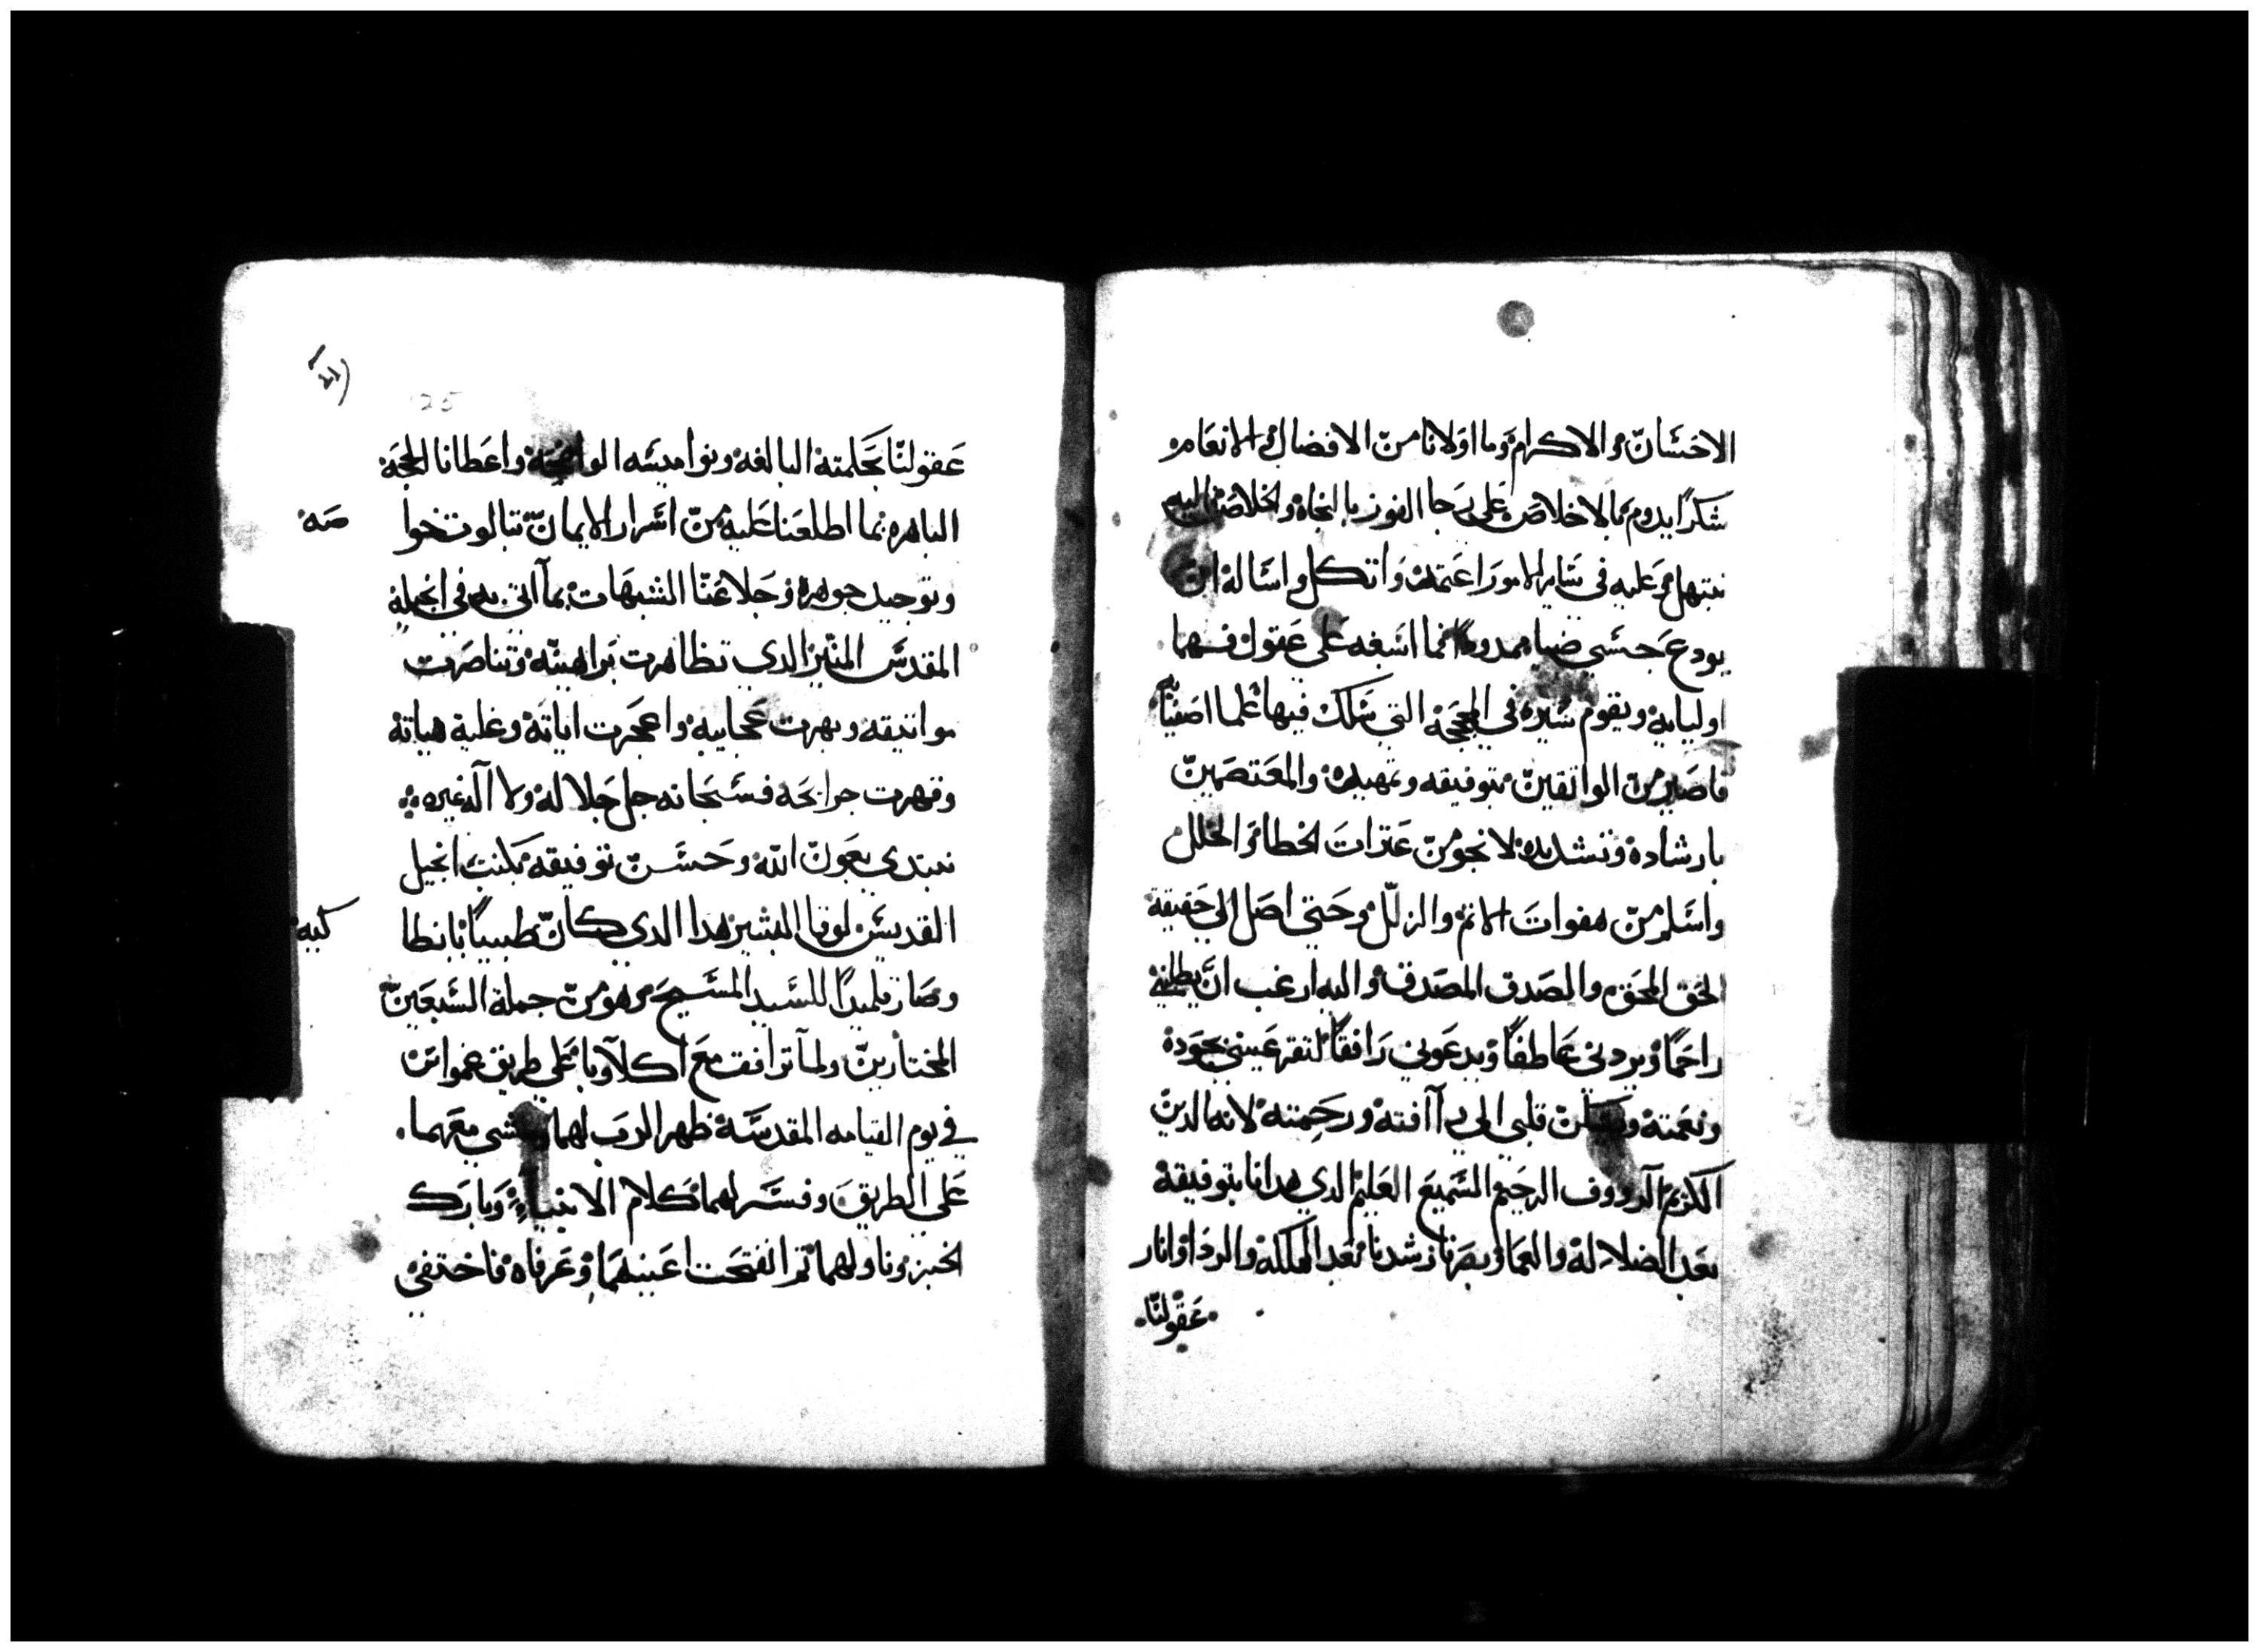 الاحسان والاكرام وما اولانا من الافضال والانعام
شكرًا يدوم بالاخلاص على رجا الفوز بالنجاه والخلاص واليه
نبتهل وعليه في ساير الامور اعتمد واتكل واساله ان
يودع حسي ضياء ممدودًا فما اسبغه علي عقول فهما
اوليايه ويقوم سيره في المحجة التي سلك فيها علما اصفيا
فاصير من الواثقين بتوفيقه وتمهيده والمعتصمين
بارشاده وتسديده لانجو من عترات الخطا والخلل
واسلم من هفوات الاثم والزلل وحتي اصل الي حقيقة
الحق المحقق والصدق المصدق واليه ارغب ان
راحمًا ويردني عاطفًا ويدعوني رافقًا لتقر عيني بجوده
ونعمته قلبي الي رآافته ورحمته لانه الدين
الكريم الرووف الرحيم السميع العليم الدي هدانا بتوفيقه
بعد الضلاله والعما وبصرنا وارشدنا بعد الهلكة والردا وانار
عقولنا
25
عقولنا بحكمته البالغه ونواميسه الواضحة واعطانا الحجة
الباهره بما اطلعنا عليه من اسرار الايمان بتالوت خوا
صه
وتوحيد جوهره وجلا عنا الشبهات بما اتي به في انجيله
المقدس المنير الدي تظاهرت براهينه وتناصرت
مواتيقه وبهرت عجايبه واعجزت اياته وغلبة هباته
وقهرت جرايحه فسبحانه جل جلاله ولا اله غيره
نبتدي بعون الله وحسن توفيقه بكتب انجيل
القديس لوقا البشير هدا الدي كان طبيبًا بانطا
كيه
وصار تلميدًا للسيد المسيح وهو من جملة السبعين
المختارين ولما ترافق مع اكلاوبا علي طريق عمواس
في يوم القيامه المقدسة ظهر الرب لهما ومشي معهما
علي الطريق وفسر لهما كلام الانبياء وبارك
الخبز وناولهما تم انفتحت اعينهما وعرفاه فاختفي